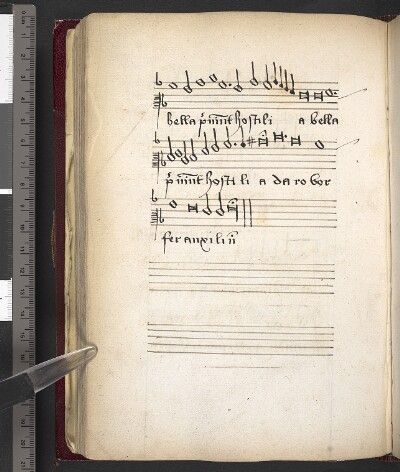 bella p̄mūt hostili a bella
p̄mūt hosti li a da ro bor
fer auxiliū